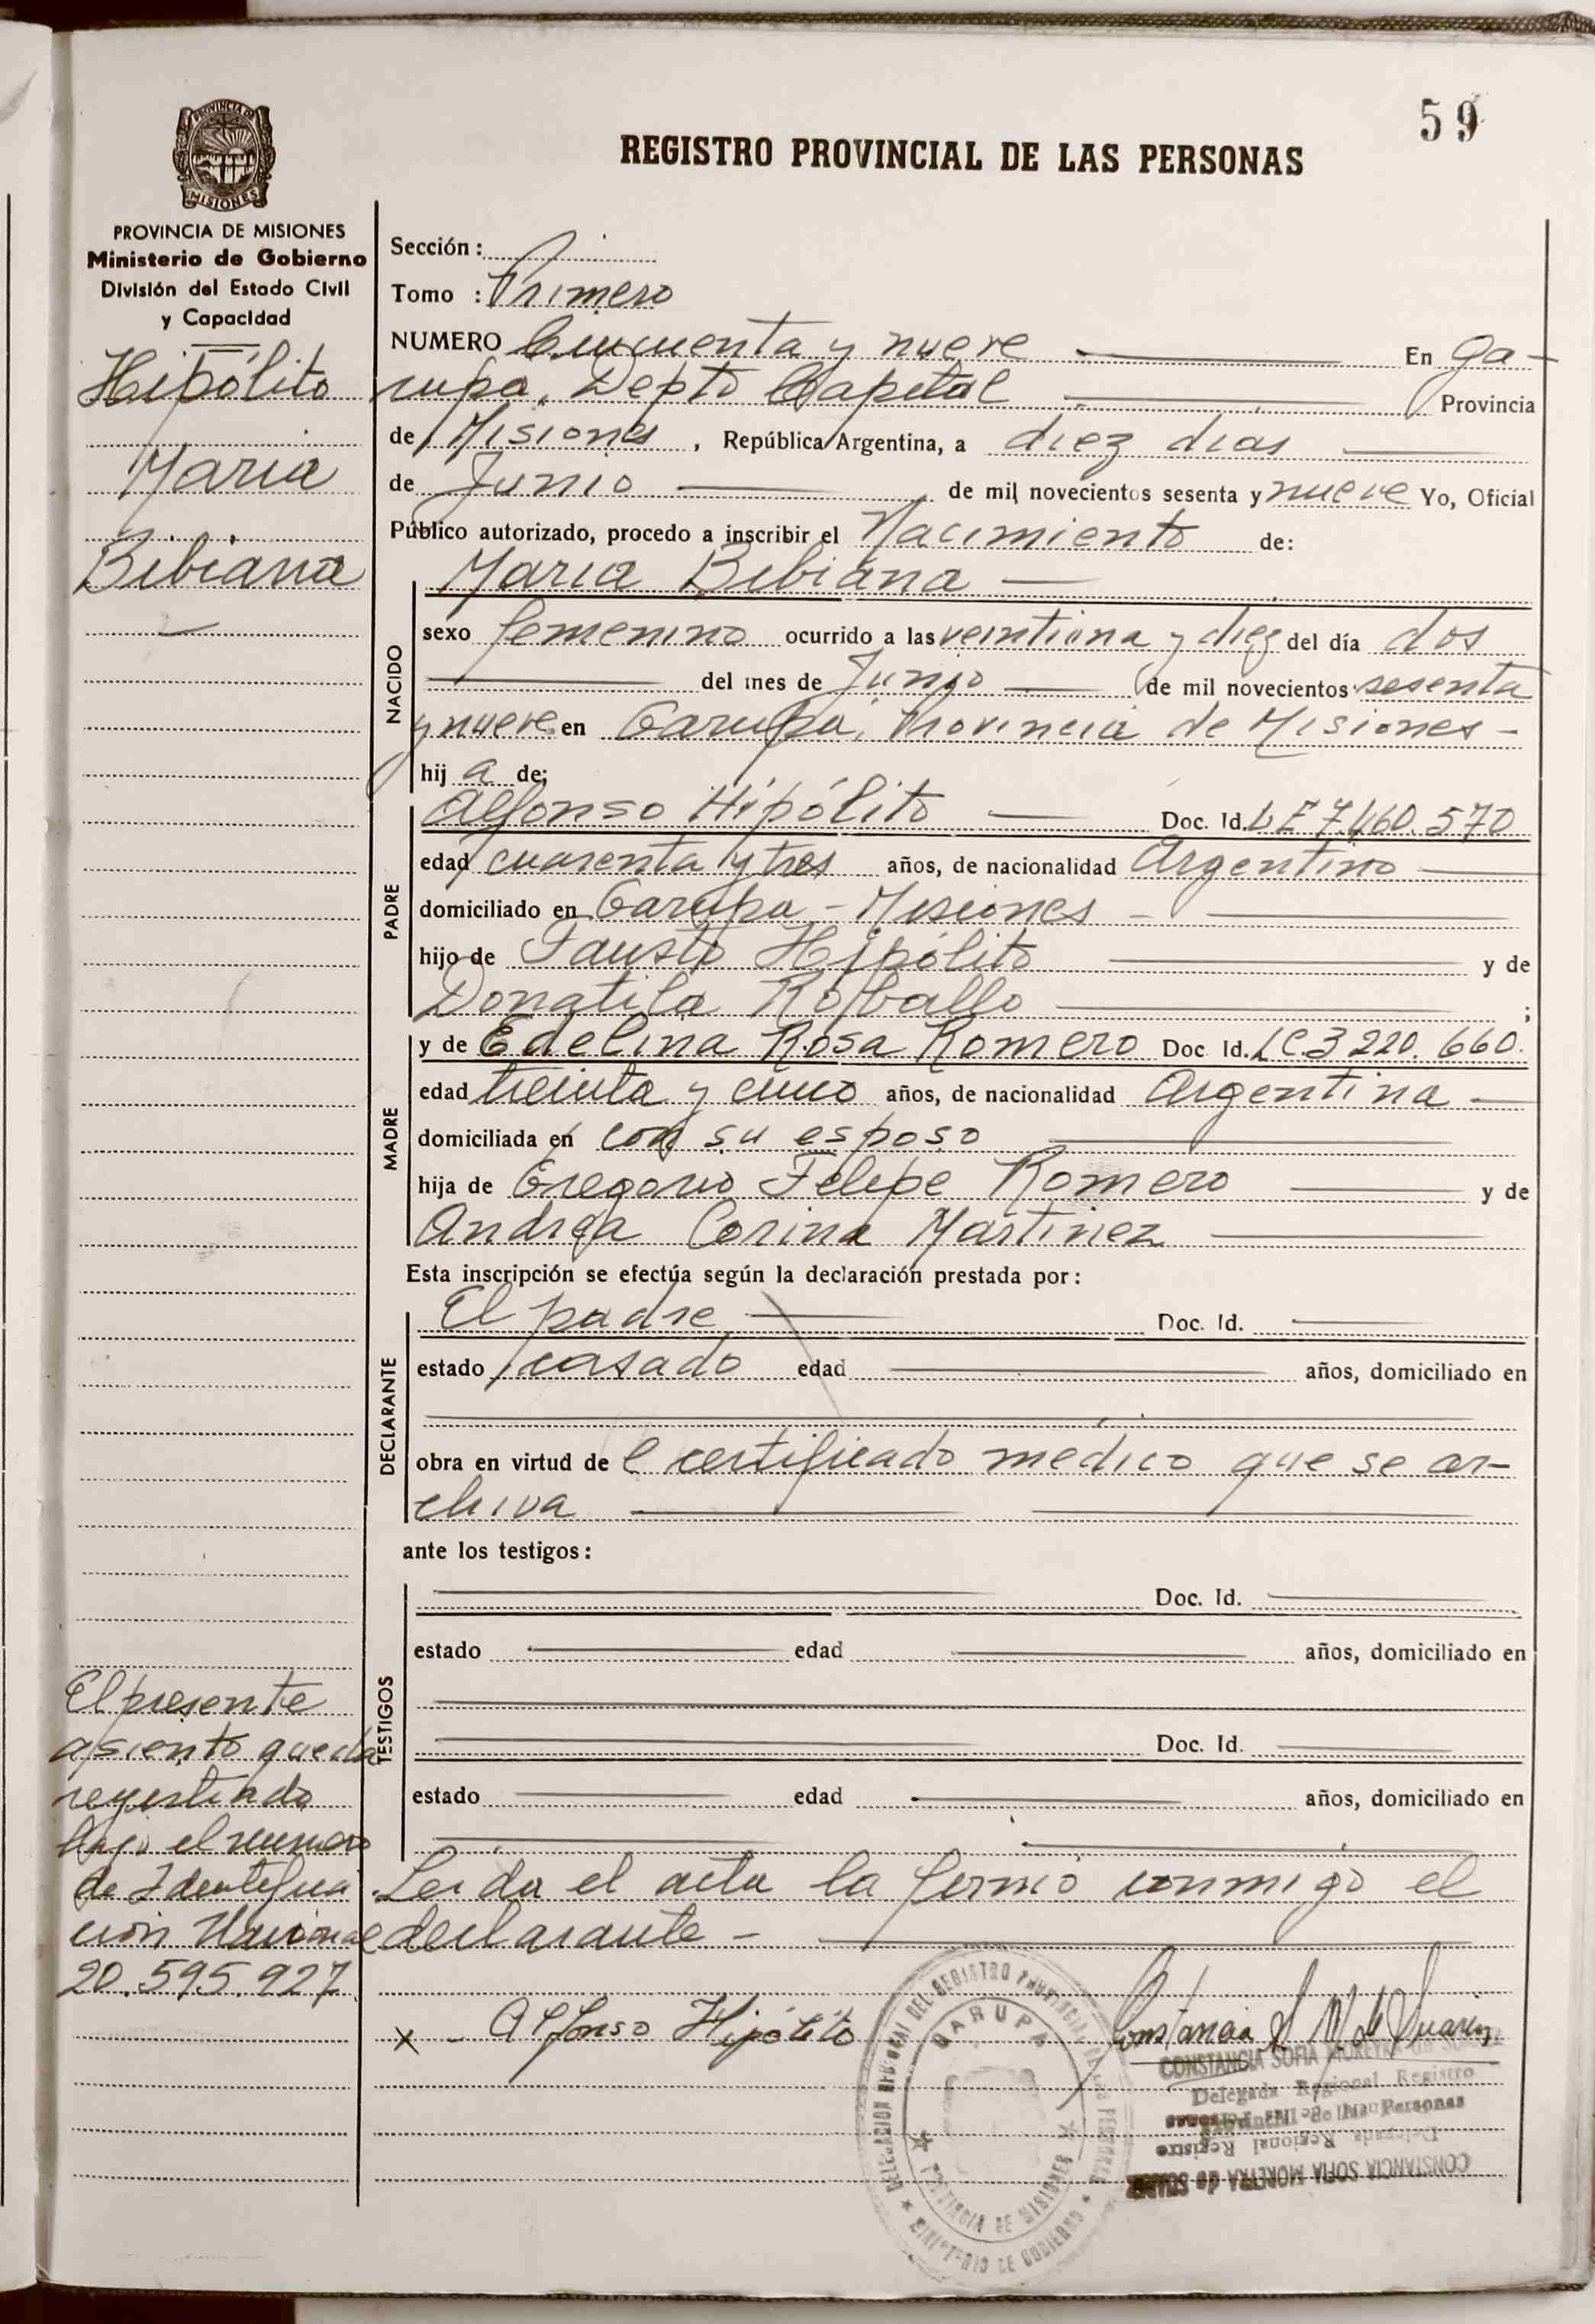 59
REGISTRO PROVINCIAL DE LAS PERSONAS
PROVINCIA DE
MISIONES
PROVINCIA DE MISIONES
Ministerio de Gobierno
División del Estado Civil
y Capacidad
Hipólito
Maria
Bibiana
Sección :
Tomo : Primero
NUMERO Cincuenta y nueve En Ga-
rupa, Depto Capital Provincia
de Misiones , República Argentina, a diez dias
de Junio de mil novecientos sesenta y nueve Yo, Oficial
Público autorizado, procedo a inscribir el Nacimiento de:
Maria Bibiana
NACIDO
sexo femenino ocurrido a las veintiuna y diez del día dos
del mes de Junio de mil novecientos sesenta
y nueve en Garupa, Provincia de Misiones -
hij a de:
PADRE
Alfonso Hipólito Doc. Id. LE 7.460.570
edad cuarenta y tres años, de nacionalidad Argentino
domiciliado en Garupa - Misiones
hijo de Fausto Hipólito y de
Donatila Roballo ;
MADRE
y de Edelina Rosa Romero Doc Id. LC.3 220.660.
edad treinta y cinco años, de nacionalidad Argentina
domiciliada en con su esposo
hija de Gregorio Felipe Romero y de
Andrea Corina Martinez
Esta inscripción se efectúa según la declaración prestada por :
DECLARANTE
El padre Doc. Id.
estado casado edad años, domiciliado en
obra en virtud de l certificado medico que se ar-
chiva
ante los testigos :
TESTIGOS
Doc. Id.
estado edad años, domiciliado en
Doc. Id.
estado edad años, domiciliado en
El presente
asiento queda
registrado
bajo el numero
de Identifica
ción Nacional
20.595.927
Leida el acta la firmó conmigo el
declarante -
x - Alfonso Hipólito
Constancia S M de Suarez
CONSTANCIA SOFIA MOREYRA de SUAREZ
Delegada Regional Registro
Provincial de las Personas
Delegada Regional Registro
CONSTANCIA SOFIA MOREYRA de SUAREZ
DELEGACION REGIONAL DEL REGISTRO PROVINCIAL DE LAS PERSONAS
GARUPA
PROVINCIA DE MISIONES
MINISTERIO DE GOBIERNO